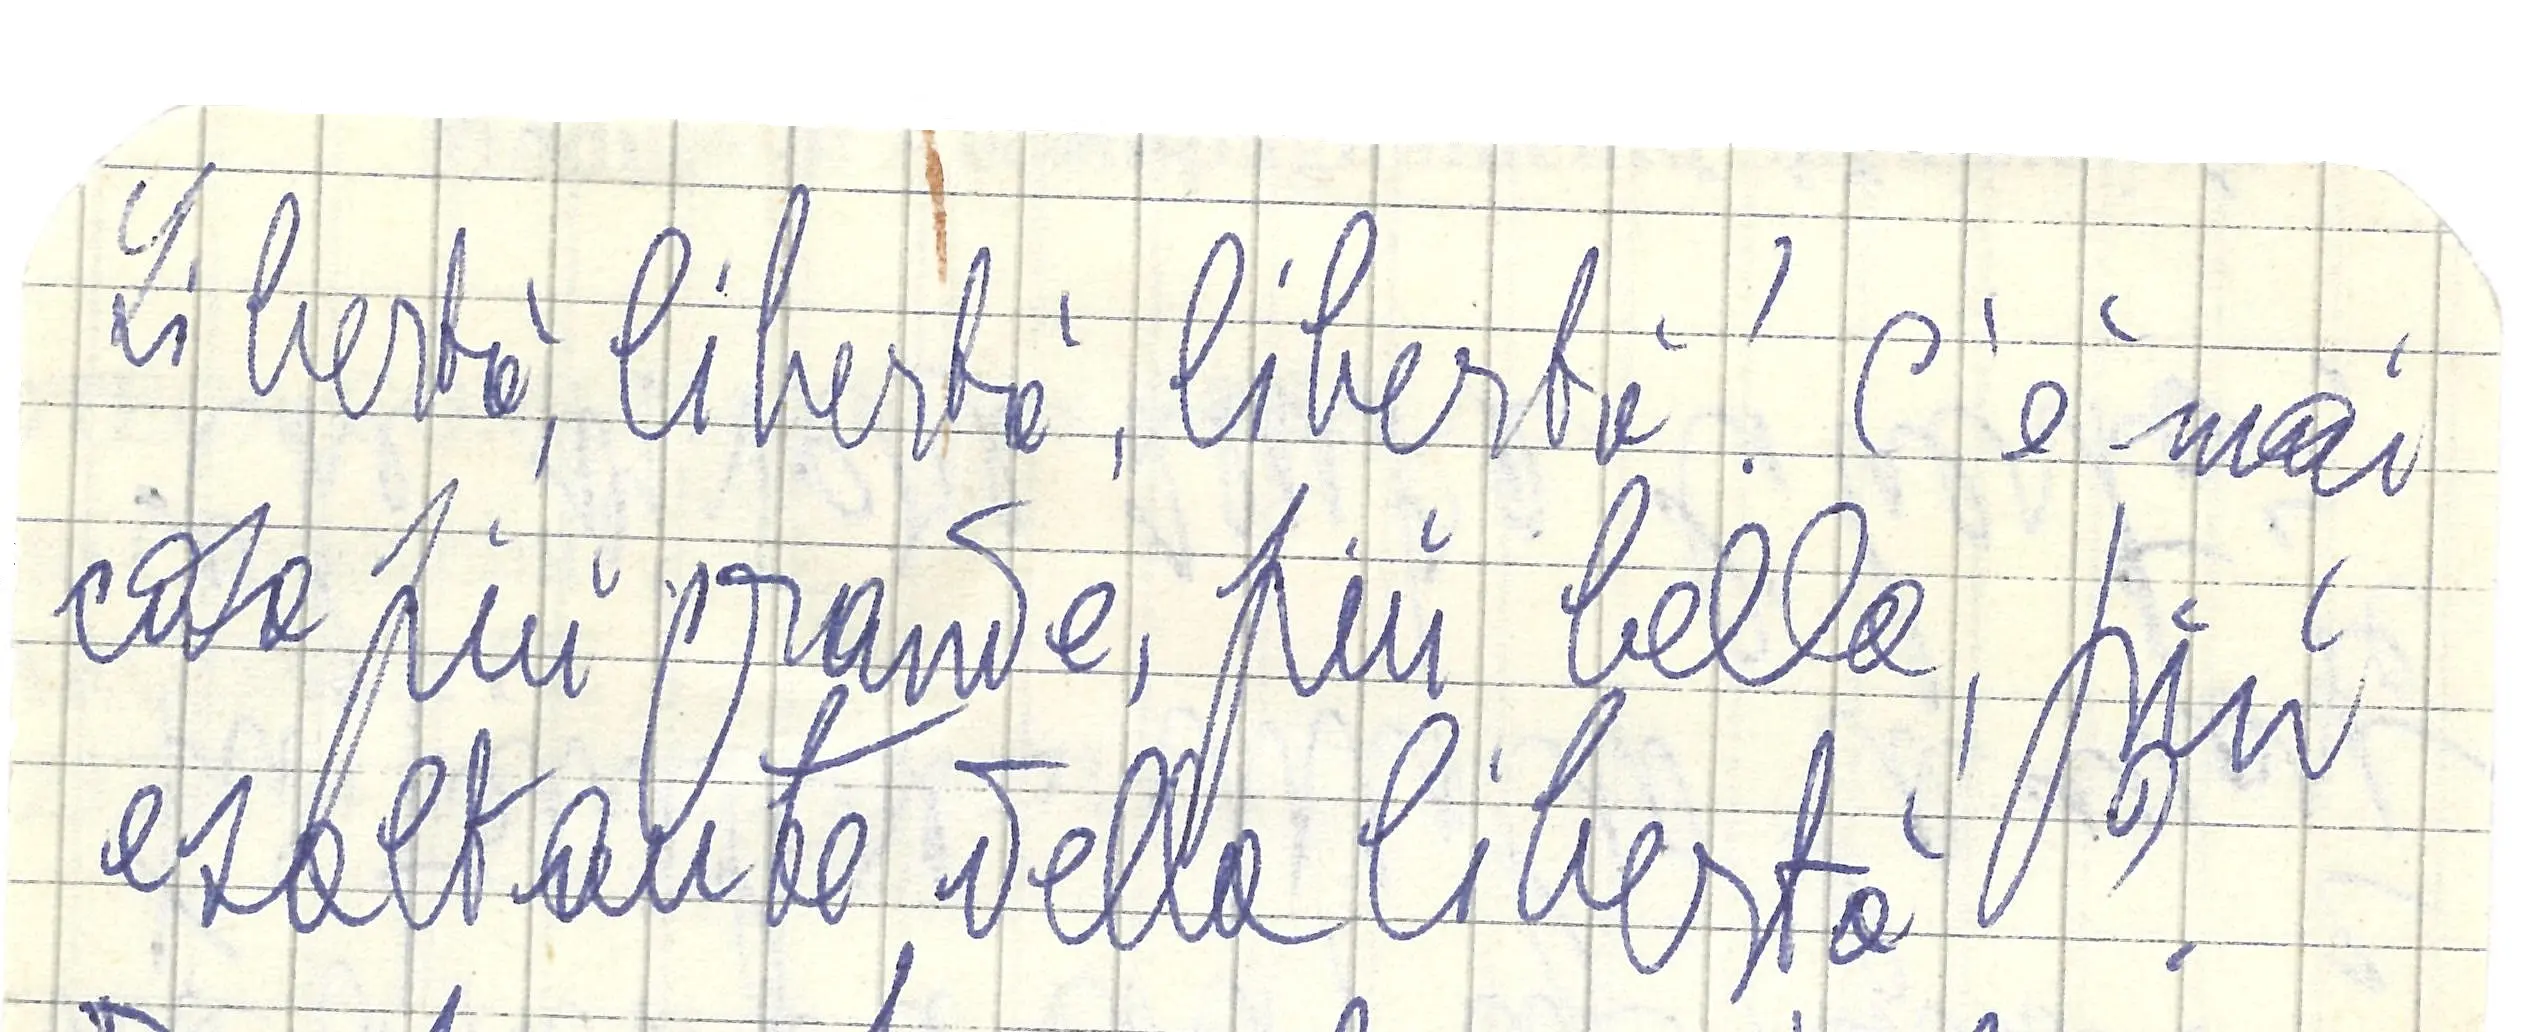 Libertà, libertà, libertà! C'è mai
cosa più grande, più bella, più
esaltante della libertà?